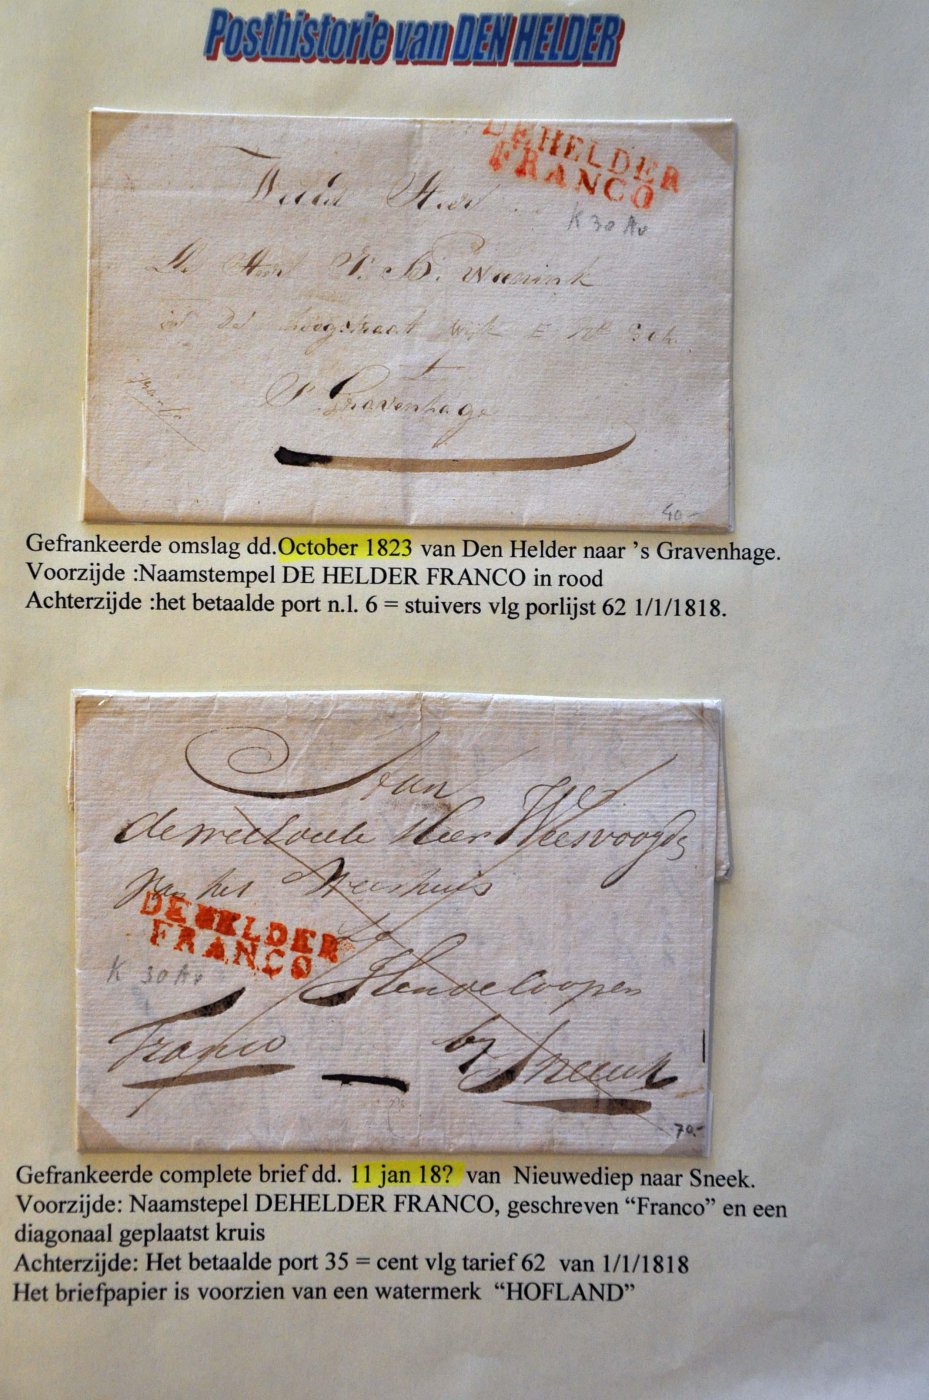 Posthistorie van DEN HELDER
DEHELDER
FRANCO
K 30 Av
De Heer P. B. Wannink
in de hoogstraat wijk E No
S Gravenhage
franco
40.-
Gefrankeerde omslag dd.October 1823 van Den Helder naar ’s Gravenhage.
Voorzijde :Naamstempel DE HELDER FRANCO in rood
Achterzijde :het betaalde port n.l. 6 = stuivers vlg porlijst 62 1/1/1818.
Aan
de Heer Weesvoogd
van het Weeshuis
DEHELDER
FRANCO
K 30 Av
Hendeloopen
Franco
by Sneek
70.-
Gefrankeerde complete brief dd. 11 jan 18? van Nieuwediep naar Sneek.
Voorzijde: Naamstepel DEHELDER FRANCO, geschreven “Franco” en een
diagonaal geplaatst kruis
Achterzijde: Het betaalde port 35 = cent vlg tarief 62 van 1/1/1818
Het briefpapier is voorzien van een watermerk “HOFLAND”